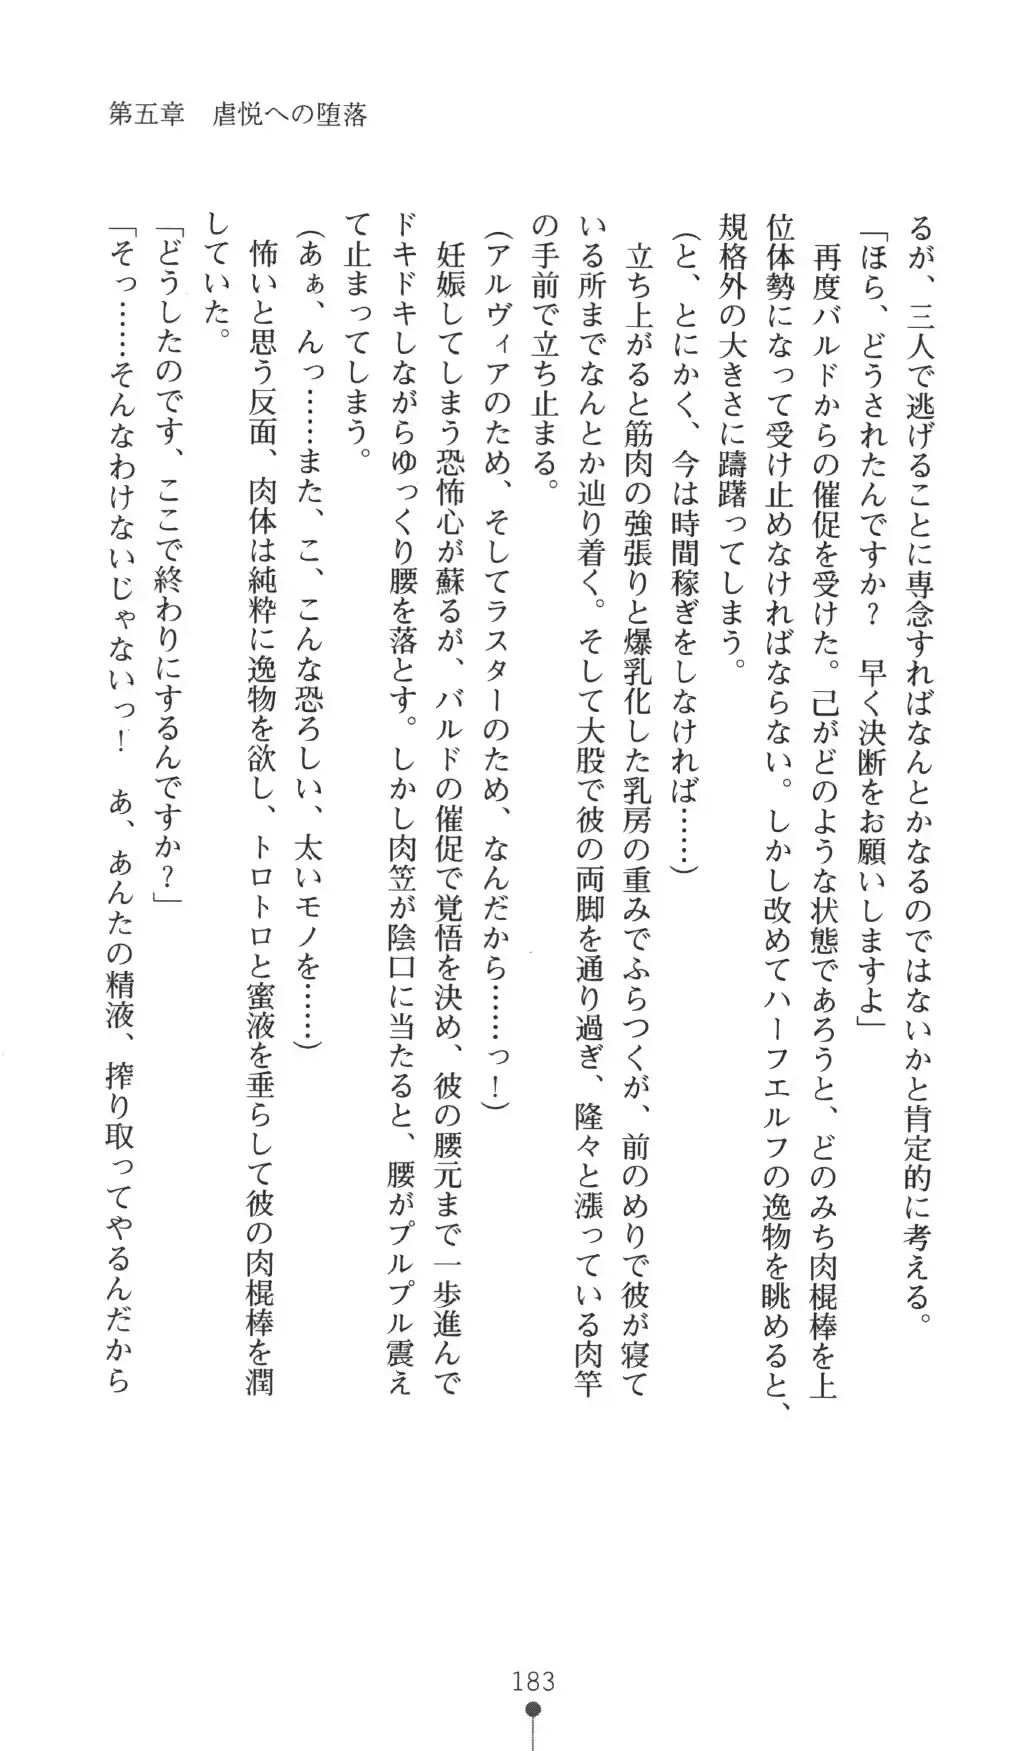 第五章　虐悦への堕落
るが、三人で逃げることに専念すればなんとかなるのではないかと肯定的に考える。
「ほら、どうされたんですか？　早く決断をお願いしますよ」
　再度バルドからの催促を受けた。己がどのような状態であろうと、どのみち肉棍棒を上
位体勢になって受け止めなければならない。しかし改めてハーフエルフの逸物を眺めると、
規格外の大きさに躊躇ってしまう。
（と、とにかく、今は時間稼ぎをしなければ……）
　立ち上がると筋肉の強張りと爆乳化した乳房の重みでふらつくが、前のめりで彼が寝て
いる所までなんとか辿り着く。そして大股で彼の両脚を通り過ぎ、隆々と漲っている肉竿
の手前で立ち止まる。
（アルヴィアのため、そしてラスターのため、なんだから……っ！）
　妊娠してしまう恐怖心が蘇るが、バルドの催促で覚悟を決め、彼の腰元まで一歩進んで
ドキドキしながらゆっくり腰を落とす。しかし肉笠が陰口に当たると、腰がプルプル震え
て止まってしまう。
（あぁ、んっ……また、こ、こんな恐ろしい、太いモノを……）
　怖いと思う反面、肉体は純粋に逸物を欲し、トロトロと蜜液を垂らして彼の肉棍棒を潤
していた。
「どうしたのです、ここで終わりにするんですか？」
「そっ……そんなわけないじゃないっ！　あ、あんたの精液、搾り取ってやるんだから
183